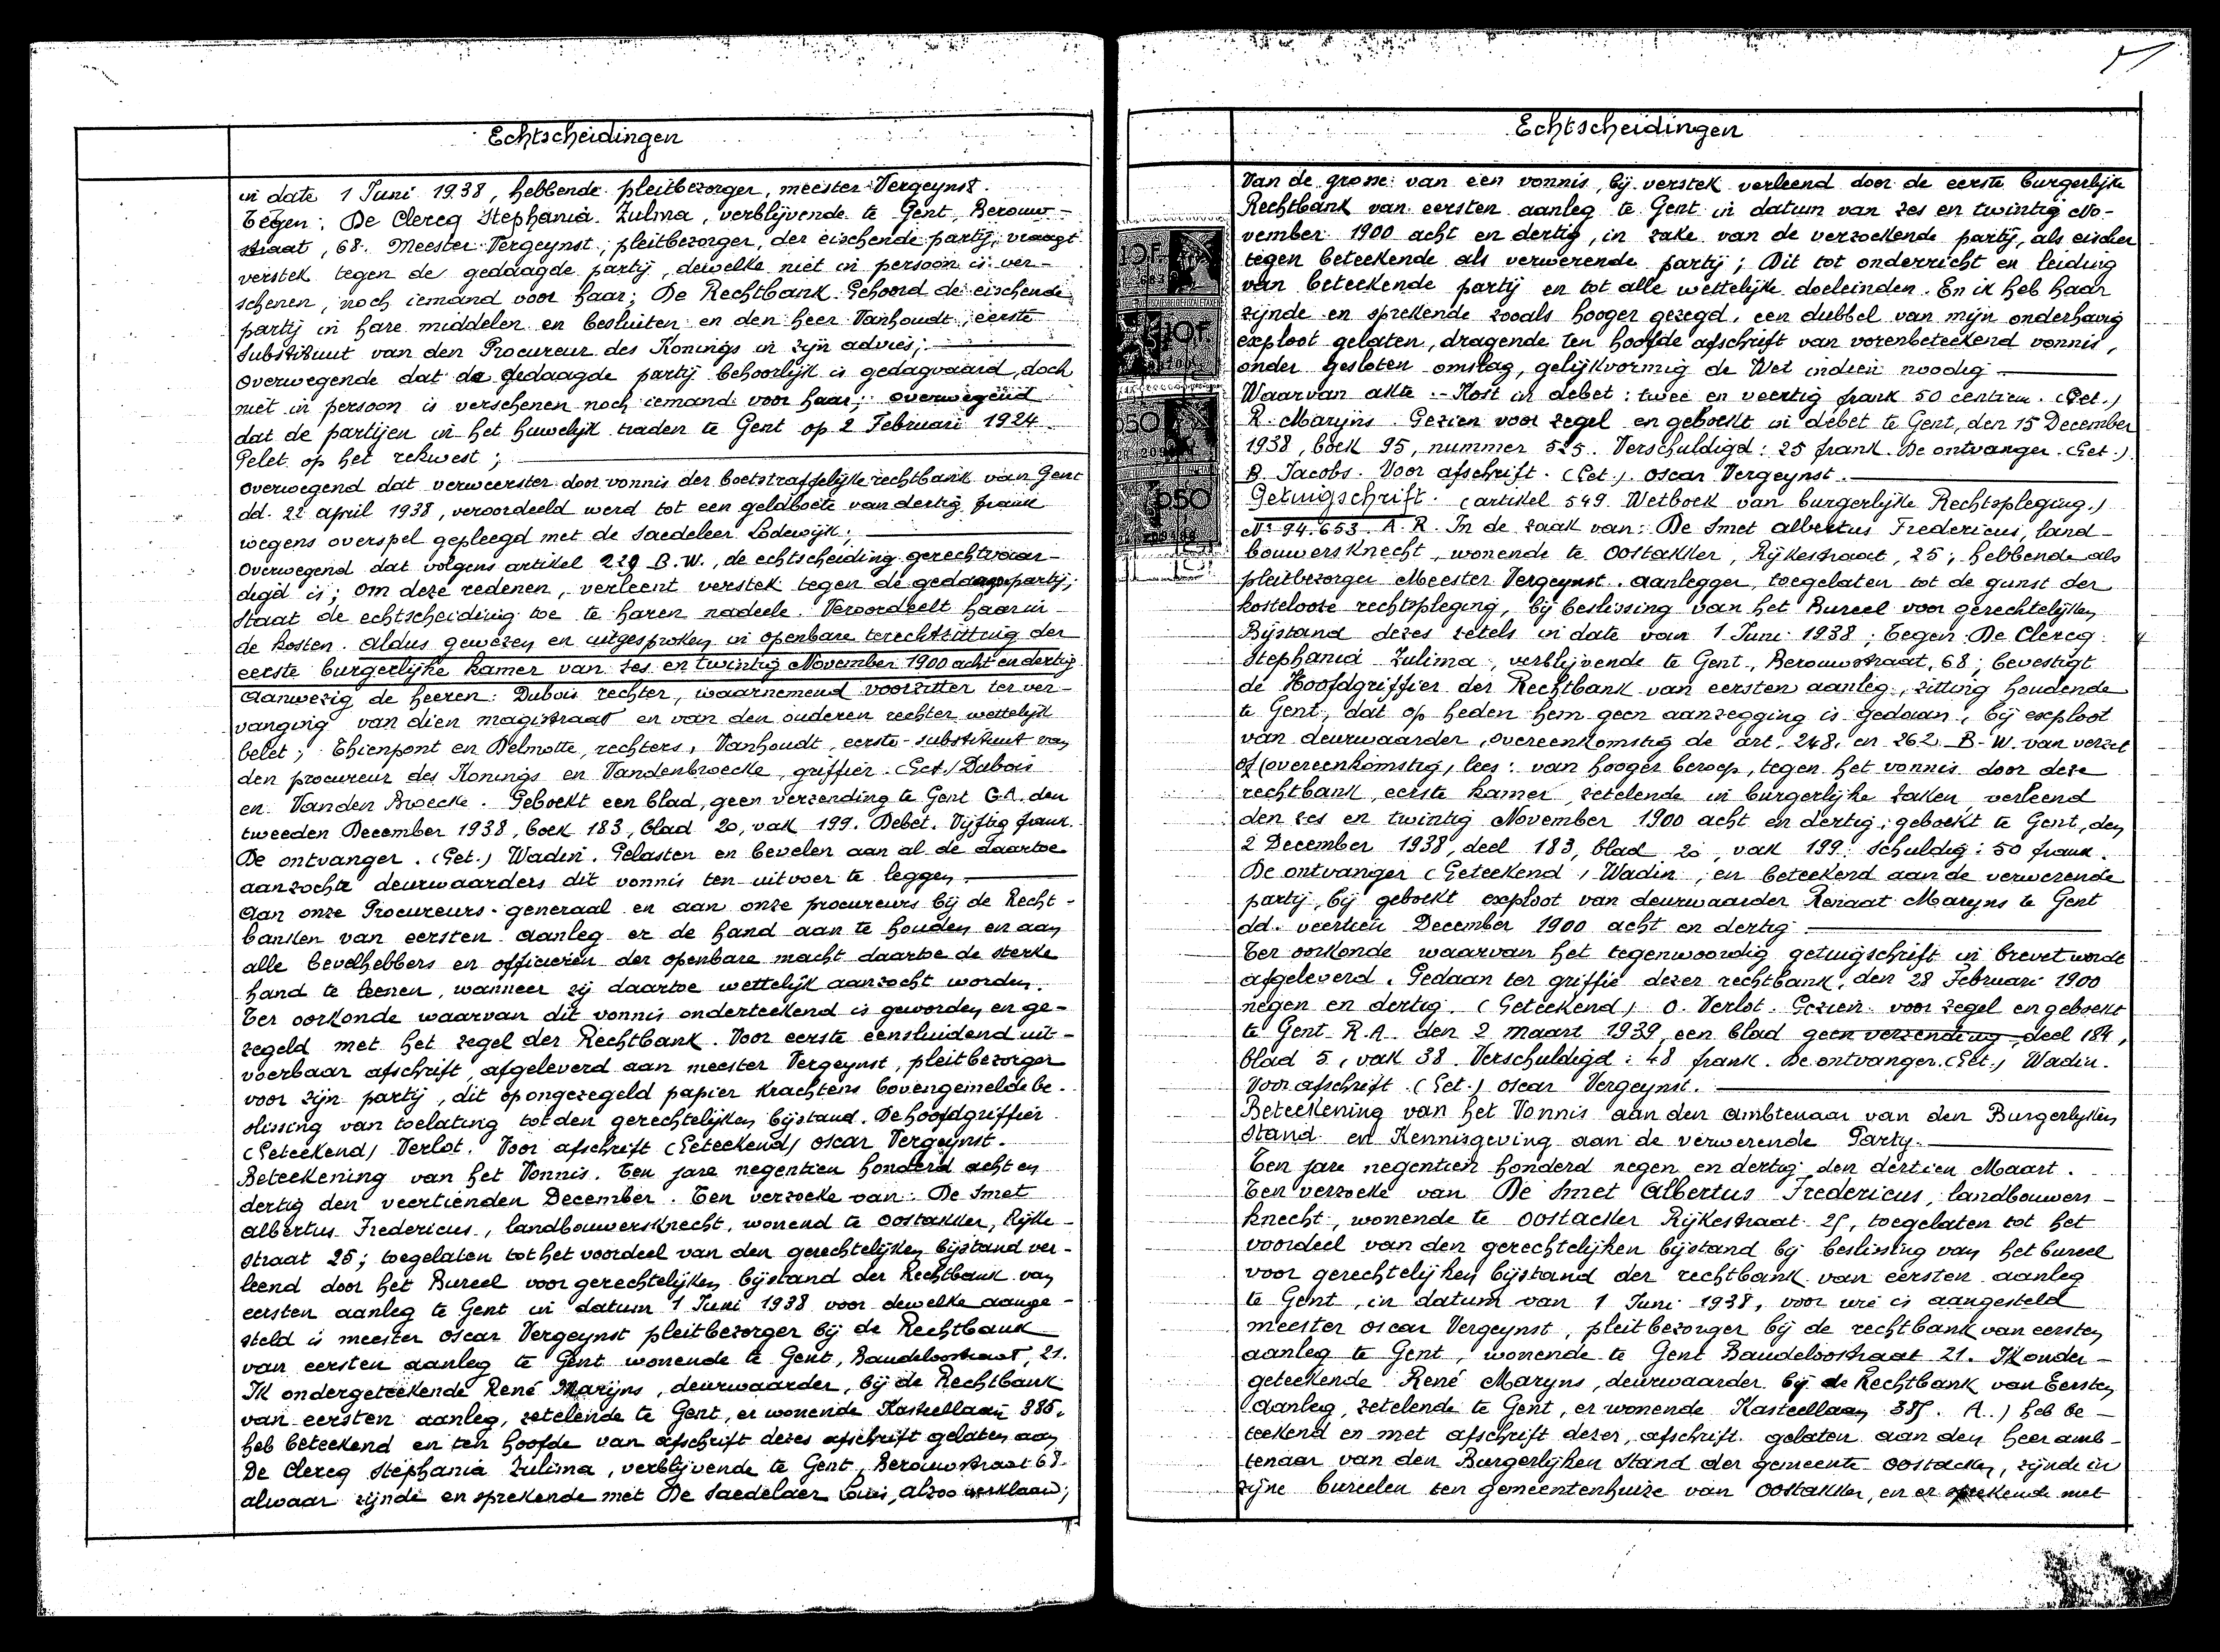 Echtscheidingen
in date 1 Juni 1938, hebbende pleitbezorger, meester Vergeynst.
Tegen: De Clercq Stephania Zulma, verblijvende te Gent, Berouw-
straat, 68. Meester Vergeynst, pleitbezorger, der eischende partij, vraagt
verstek tegen de gedaagde partij, dewelke niet in persoon is ver-
schenen, noch iemand voor haar; De Rechtbank. Gehoord de eischende
partij in hare middelen en besluiten en den heer Vanhoudt, eerste
Substituut van den Procureur des Konings in zijn advies;
Overwegende dat de gedaagde partij behoorlijk is gedagvaard, doch
niet in persoon is verschenen noch iemand voor haar; overwegend
dat de partijen in het huwelijk traden te Gent op 2 Februari 1924
Gelet op het rekwest;
Overwegend dat verweerster door vonnis der boetstraffelijke rechtbank van Gent
dd. 22 april 1938, veroordeeld werd tot een geldboete van dertig frank
wegens overspel gepleegd met de Saedeleer Lodewijk;
Overwegend dat volgens artikel 229 B.W., de echtscheiding gerechtvaar-
digd is; Om deze redenen, verleent verstek tegen de gedaagde partij;
Staat de echtscheiding toe te haren nadeele. Veroordeelt haar in
de kosten. Aldus gewezen en uitgesproken in openbare terechtzitting der
eerste burgerlijke kamer van zes en twintig November 1900 acht en dertig
Aanwezig de heeren: Dubois rechter, waarnemend voorzitter ter ver-
vanging van dien magistraat en van den ouderen rechter wettelijk
belet; Thienpont en Delmotte, rechters, Vanhoudt, eerste-substituut van
den procureur des Konings en Vandenbroecke, griffier. (Get.) Dubois
en Vanden Broecke. Geboekt een blad, geen verzending te Gent G.A. den
tweeden December 1938, boek 183, blad 20, vak 199. Debet. Vijftig frank.
De ontvanger. (Get.) Wadin. Gelasten en bevelen aan al de daartoe
aanzochte deurwaarders dit vonnis ten uitvoer te leggen.
Aan onze Procureurs-generaal en aan onze procureurs bij de Recht-
banken van eersten aanleg er de hand aan te houden en aan
alle bevelhebbers en officieren der openbare macht daartoe de sterke
hand te leenen, wanneer zij daartoe wettelijk aanzocht worden.
Ter oorkonde waarvan dit vonnis onderteekend is geworden en ge-
zegeld met het zegel der Rechtbank. Voor eerste eensluidend uit-
voerbaar afschrift, afgeleverd aan meester Vergeynst, pleitbezorger
voor zijn partij, dit op ongezegeld papier krachtens bovengemelde be-
slissing van toelating tot den gerechtelijken bijstand. De hoofdgriffier
(Geteekend) Verlot. Voor afschrift (Geteekend) Oscar Vergeynst.
Beteekening van het Vonnis. Ten jare negentien honderd acht en
dertig den veertienden December. Ten verzoeke van: De Smet
Albertus Fredericus, landbouwersknecht, wonend te Oostakker, Rijke-
straat 25; toegelaten tot het voordeel van den gerechtelijken bijstand ver-
leend door het Bureel voor gerechtelijken bijstand der Rechtbank van
eersten aanleg te Gent in datum 1 Juni 1938 voor dewelke aange-
steld is meester Oscar Vergeynst pleitbezorger bij de Rechtbank
van eersten aanleg te Gent wonende te Gent, Baudeloostraat, 21.
Ik ondergeteekende René Marijns, deurwaarder, bij de Rechtbank
van eersten aanleg, zetelende te Gent, er wonende Kasteellaan 385.
heb beteekend en ten hoofde van afschrift dezes afschrift gelaten aan
De Clercq Stephania Zulima, verblijvende te Gent, Berouwstraat 68.
alwaar zijnde en sprekende met De Saedelaer Louis, alzoo verklaard;
Echtscheidingen
Van de grosse van een vonnis, bij verstek verleend door de eerste burgerlijke
Rechtbank van eersten aanleg te Gent in datum van zes en twintig No-
vember 1900 acht en dertig, in zake van de verzoekende partij, als eischer
tegen beteekende als verwerende partij; Dit tot onderricht en leiding
van beteekende partij en tot alle wettelijke doeleinden. En ik heb haar
zijnde en sprekende zooals hooger gezegd, een dubbel van mijn onderhavig
exploot gelaten, dragende ten hoofde afschrift van vorenbeteekend vonnis,
onder gesloten omslag, gelijkvormig de Wet indien noodig
Waarvan akte.- Kost in debet: twee en veertig frank 50 centiem. (Get.)
R. Marijns. Gezien voor zegel en geboekt in debet te Gent, den 15 December
1938, boek 95, nummer 525. Verschuldigd: 25 frank. De ontvanger. (Get.)
B. Jacobs. Voor afschrift. (Get.) Oscar Vergeynst.
Getuigschrift. (artikel 549 Wetboek van burgerlijke Rechtspleging.)
N° 94.653 A.R. In de zaak van: De Smet Albertus Fredericus, land-
bouwersknecht, wonende te Oostakker, Rijkestraat, 25; hebbende als
pleitbezorger Meester Vergeynst. aanlegger, toegelaten tot de gunst der
kostelooze rechtspleging, bij beslissing van het Bureel voor gerechtelijken
Bijstand dezes zetels in date van 1 Juni 1938; Tegen: De Clercq
Stephania Zulima, verblijvende te Gent, Berouwstraat, 68; bevestigt
de Hoofdgriffier der Rechtbank van eersten aanleg, zitting houdende
te Gent, dat op heden hem geen aanzegging is gedaan, bij exploot
van deurwaarder, overeenkomstig de art. 248. en 262 B.W. van verzet
of (overeenkomstig, lees: van hooger beroep, tegen het vonnis door deze
rechtbank, eerste kamer, zetelende in burgerlijke zaken, verleend
den zes en twintig November 1900 acht en dertig; geboekt te Gent, den
2 December 1938, deel 183, blad 20, vak 199. schuldig: 50 frank.
De ontvanger (Geteekend) Wadin, en beteekend aan de verwerende
partij, bij geboekt exploot van deurwaarder Renaat Maryns te Gent
dd. veertien December 1900 acht en dertig
Ter oorkonde waarvan het tegenwoordig getuigschrift in brevet wordt
afgeleverd. Gedaan ter griffie dezer rechtbank, den 28 Februari 1900
negen en dertig. (Geteekend) O. Verlot. Gezien voor zegel en geboekt
te Gent R.A. den 2 Maart 1939, een blad geen verzending, deel 184,
blad 5, vak 38. Verschuldigd: 48 frank. De ontvanger. (Get.) Wadin.
Voor afschrift. (Get.) Oscar Vergeynst.
Beteekening van het Vonnis aan den Ambtenaar van den Burgerlyken
Stand en Kennisgeving aan de verwerende Party.
Ten jare negentien honderd negen en dertig den dertien Maart.
Ten verzoeke van De Smet Albertus Fredericus, landbouwers-
knecht, wonende te Oostacker Rijkestraat 25, toegelaten tot het
voordeel van den gerechtelijken bijstand bij beslissing van het bureel
voor gerechtelijken bijstand der rechtbank van eersten aanleg
te Gent, in datum van 1 Juni 1938, voor wie is aangesteld
meester Oscar Vergeynst, pleitbezorger bij de rechtbank van eersten
aanleg te Gent, wonende te Gent Baudeloostraat 21. Ik onder-
geteekende René Maryns, deurwaarder bij de Rechtbank van Eersten
Aanleg, zetelende te Gent, er wonende Kasteellaan 385. A.) heb be-
teekend en met afschrift dezer, afschrift gelaten aan den heer amb-
tenaar van den Burgerlijken Stand der gemeente Oostacker, zijnde in
zijne bureelen ten gemeentenhuize van Oostakker, en er sprekende met
10F.
10F.
050
050